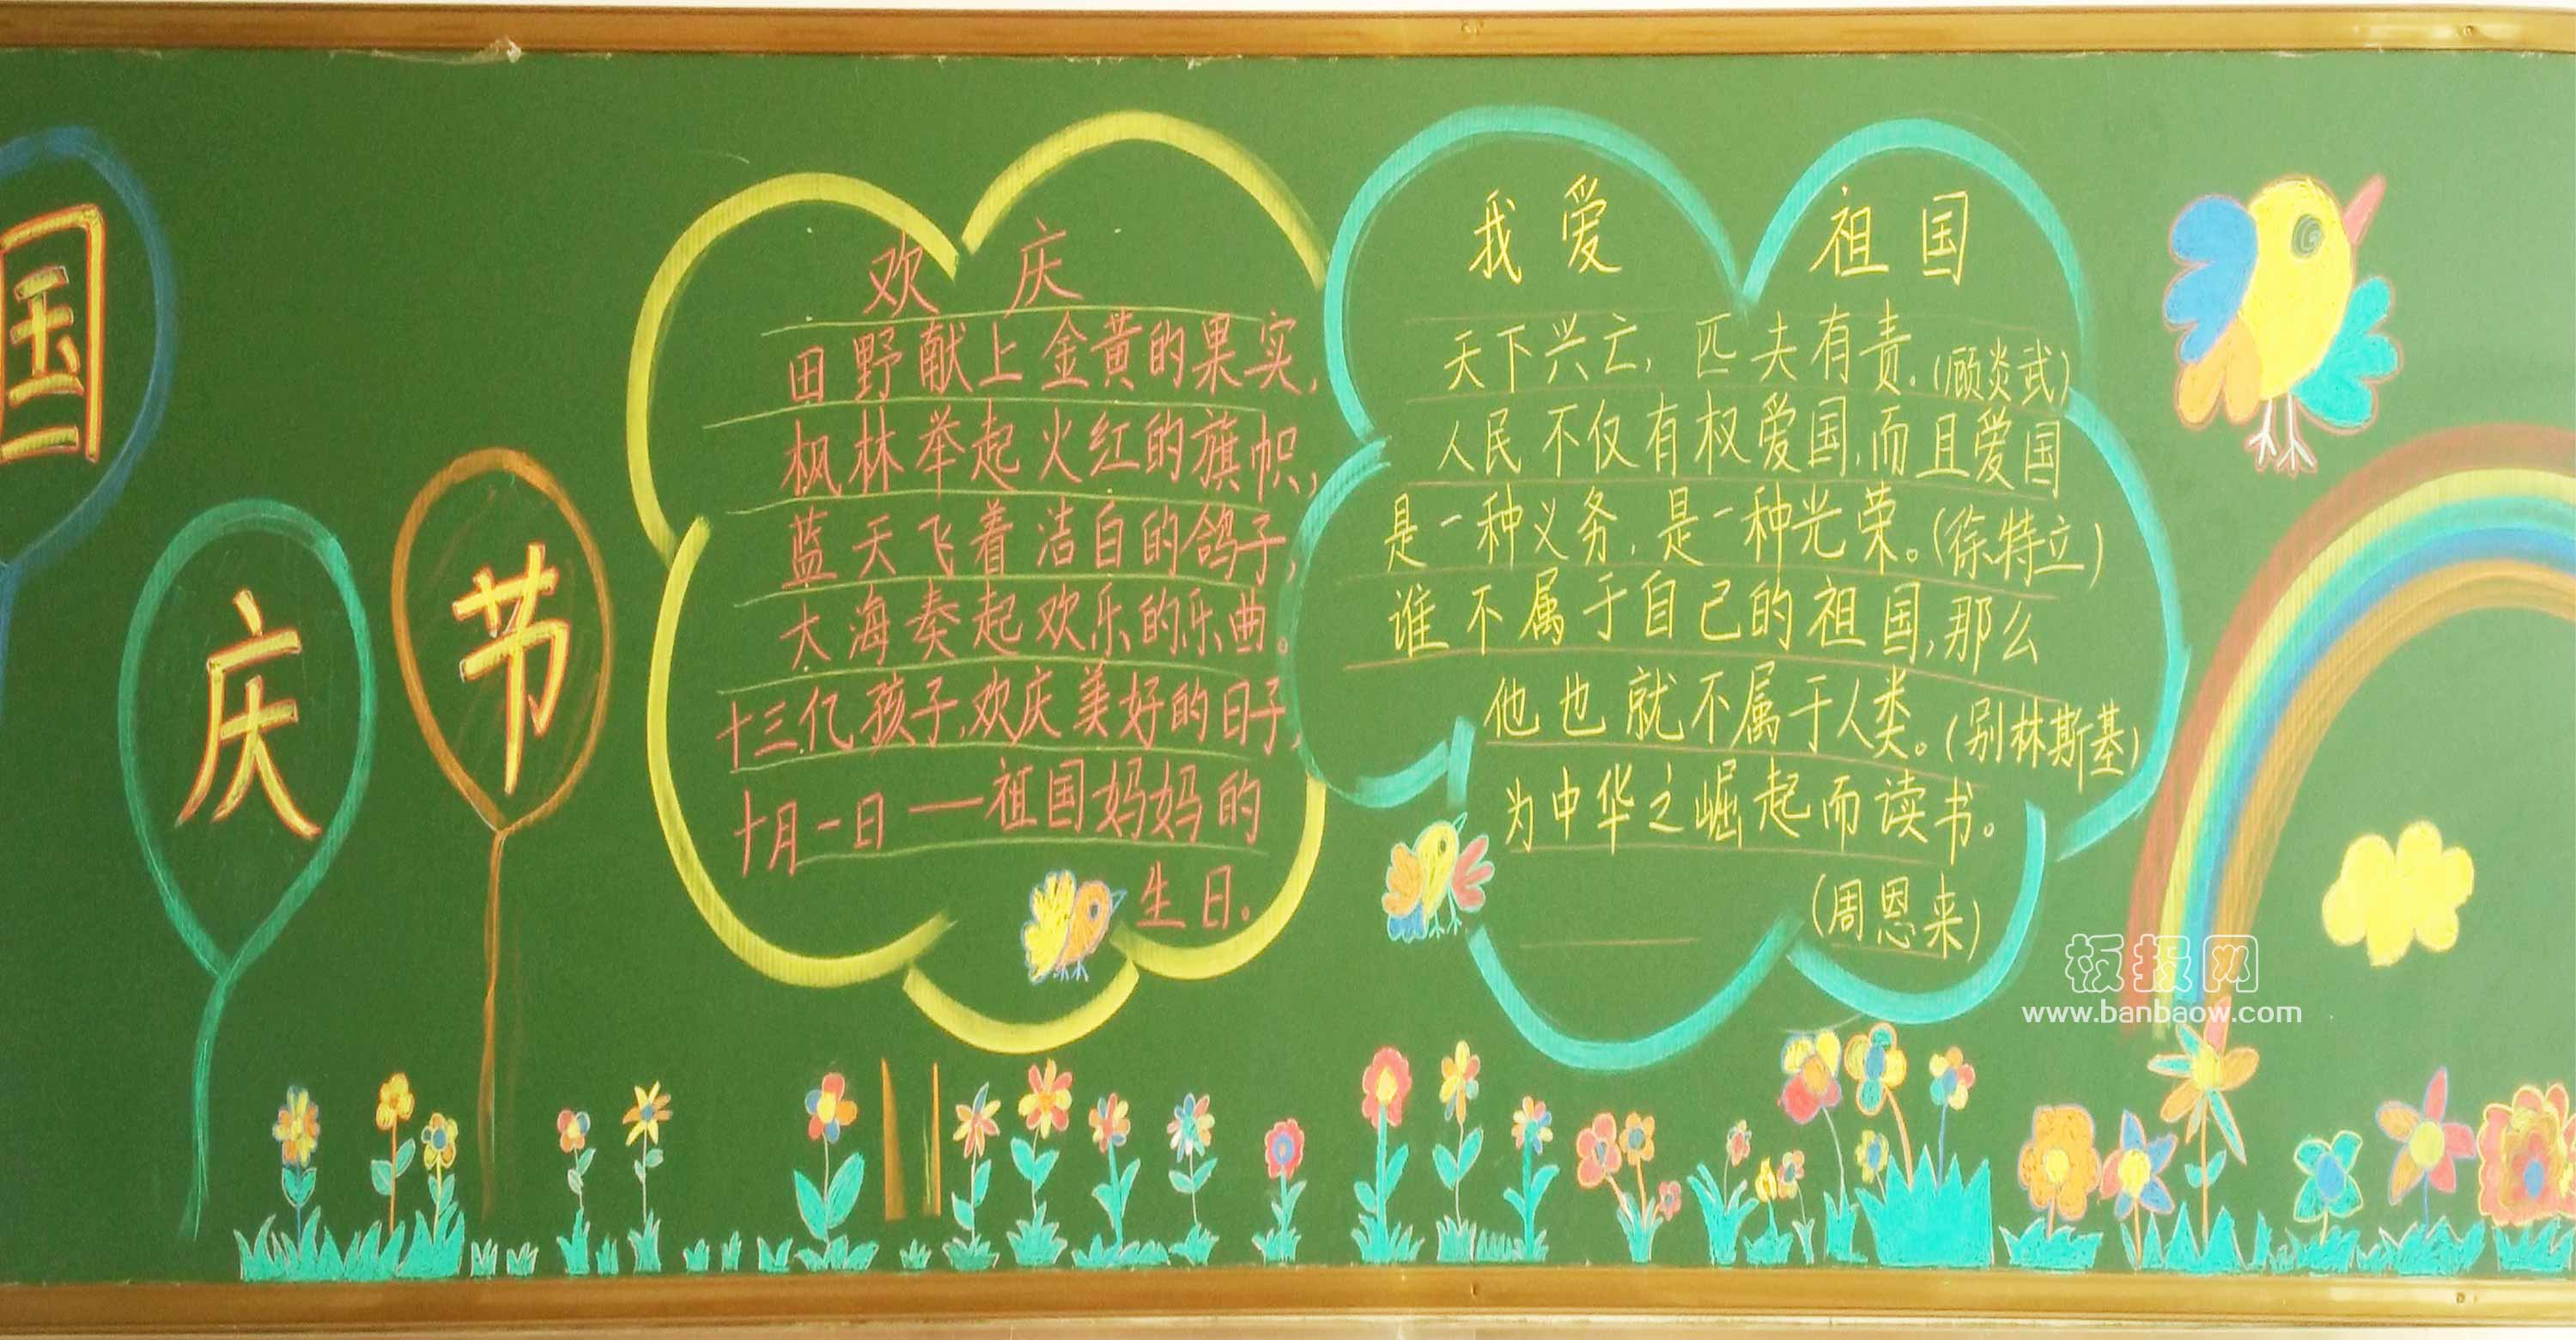 国
庆
节
欢 庆
田野献上金黄的果实,
枫林举起火红的旗帜,
蓝天飞着洁白的鸽子,
大海奏起欢乐的乐曲。
十三亿孩子,欢庆美好的日子,
十月一日——祖国妈妈的
生日。
我 爱 祖 国
天下兴亡, 匹夫有责。(顾炎武)
人民不仅有权爱国,而且爱国
是一种义务,是一种光荣。(徐特立)
谁不属于自己的祖国,那么
他也就不属于人类。(别林斯基)
为中华之崛起而读书。
(周恩来)
板报网
www.banbaow.com